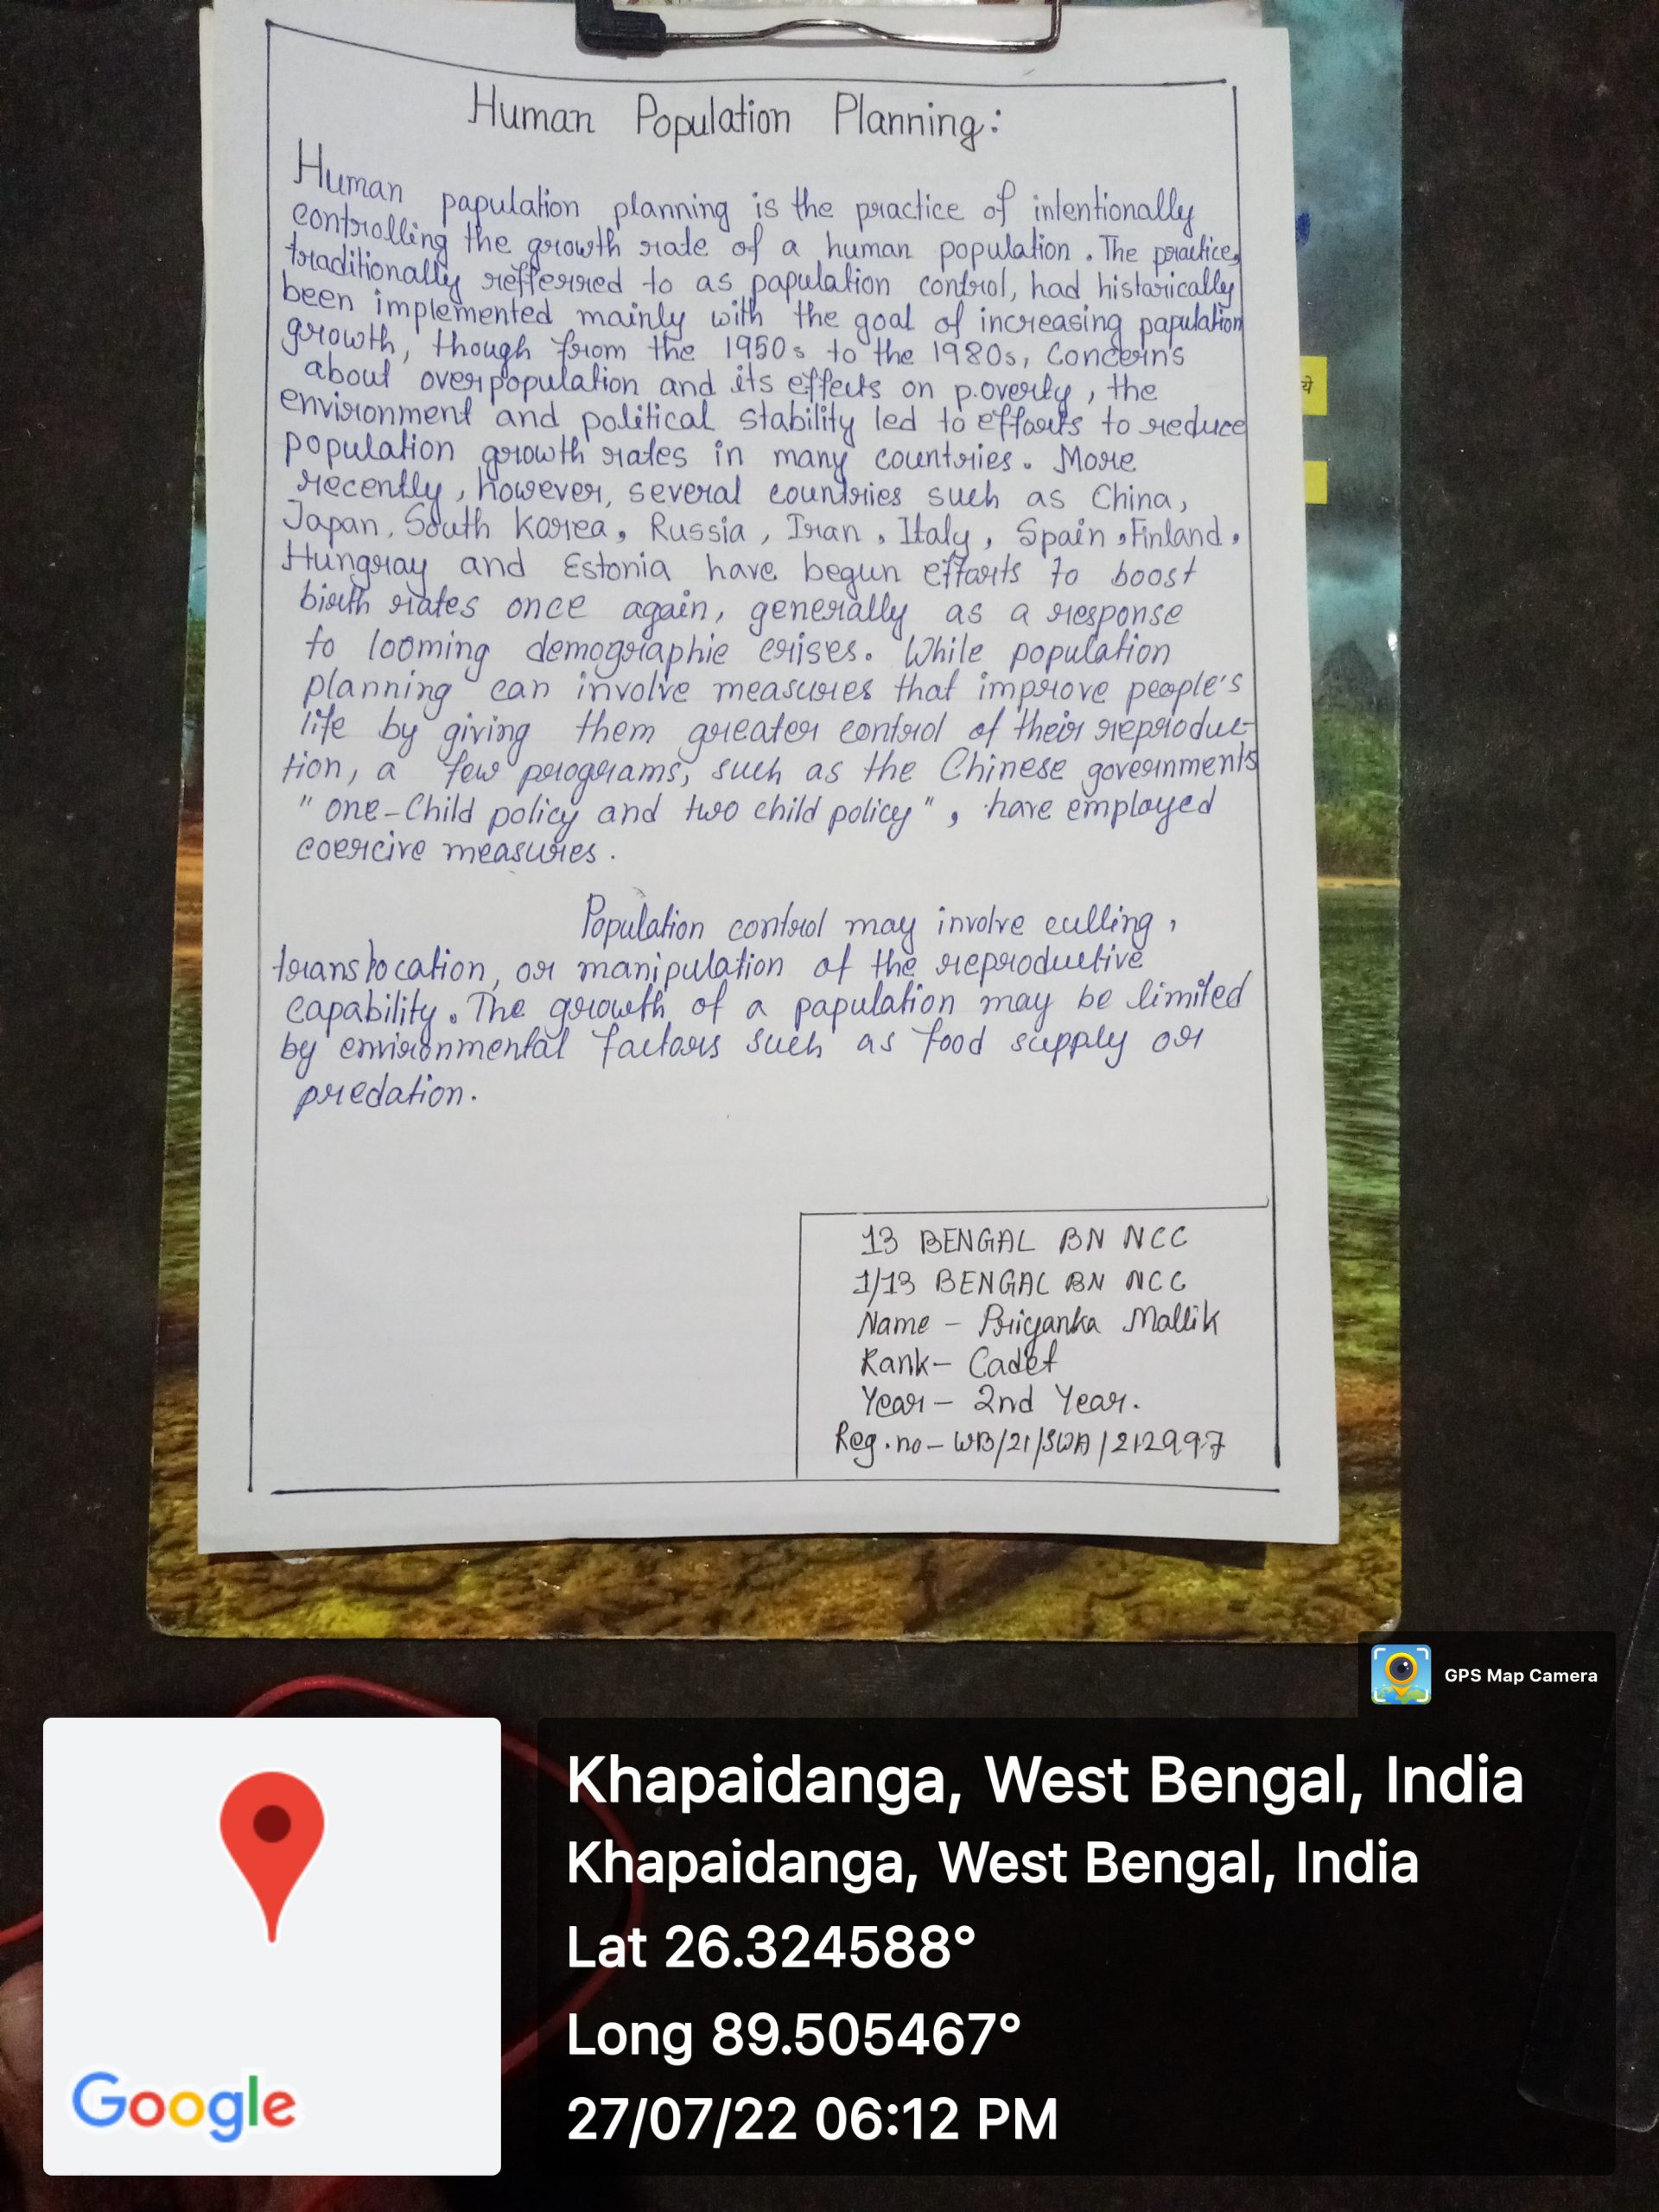 Human Population Planning:
Human papulation planning is the practice of intentionally
controlling the growth rate of a human population. The practice,
traditionally refferred to as papulation control, had histarically
been implemented mainly with the goal of increasing papulation
growth, though from the 1950s to the 1980s, Concerns
about overpopulation and its effects on poverty, the
environment and political stability led to effoarts to reduce
population growth rates in many countries. More
recently, however, several countries such as China,
Japan, South Karea, Russia, Iran, Italy, Spain, Finland,
Hungray and Estonia have begun effarts to boost
birth rates once again, generally as a response
to looming demographic crises. While population
planning can involve measures that improve people's
life by giving them greater control of their reproduc-
tion, a few programs, such as the Chinese governments
"one-Child policy and two child policy", have employed
coercive measures.
Population control may involve culling,
translocation, or manipulation of the reproductive
capability. The growth of a papulation may be limited
by environmental factoars such as food supply or
predation.
13 BENGAL BN NCC
1/13 BENGAL BN NCC
Name - Priyanka Mallik
Rank- Cadet
Year - 2nd Year.
Reg.no - WB/21/SWA/212997
ये
GPS Map Camera
Google
Khapaidanga, West Bengal, India
Khapaidanga, West Bengal, India
Lat 26.324588°
Long 89.505467°
27/07/22 06:12 PM